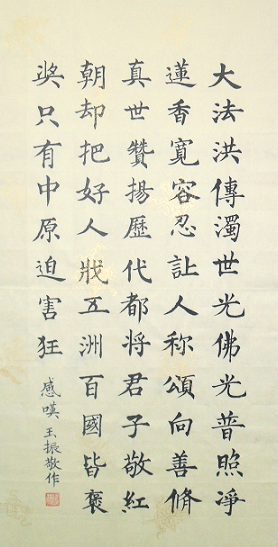 大法洪傳濁世光佛光普照淨
蓮香寬容忍让人称頌向善脩
真世贊揚歷代都將君子敬紅
朝却把好人戕五洲百國皆褒
奖只有中原迫害狂
感嘆 玉振敬作